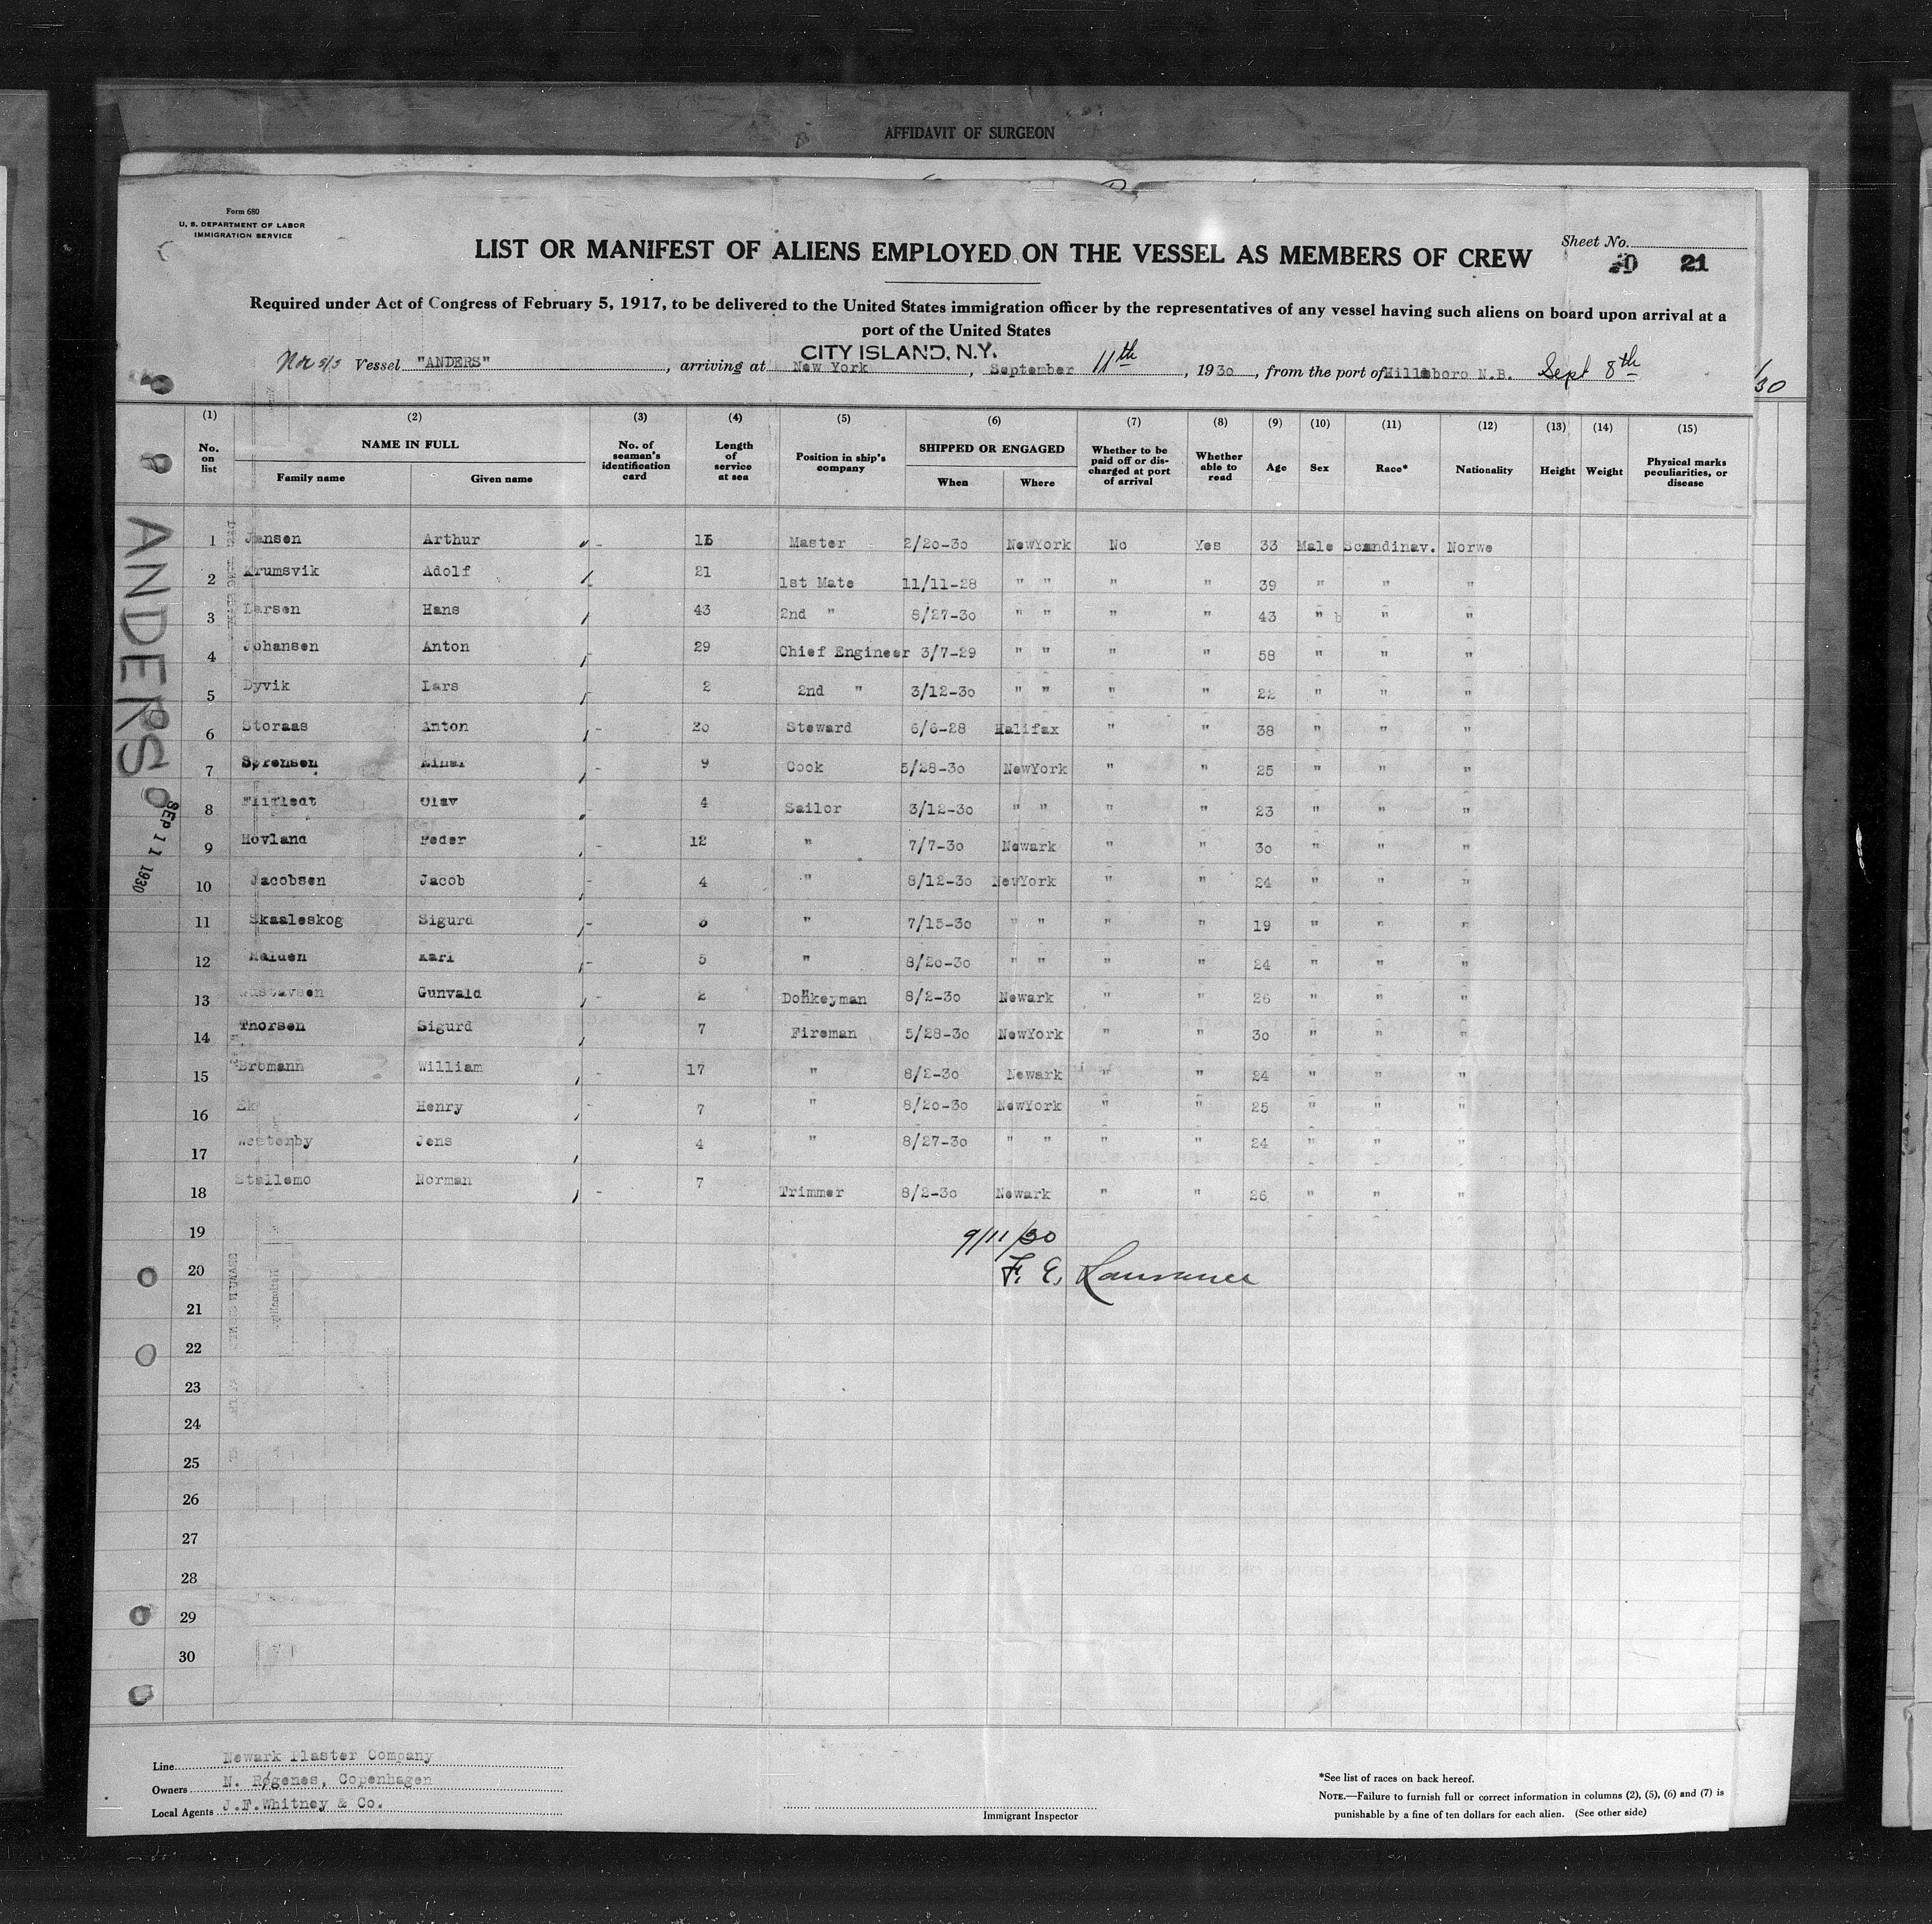 AFFIDAVIT OF SURGEON
Form 680
U. S. DEPARTMENT OF LABOR
IMMIGRATION SERVICE
LIST OR MANIFEST OF ALIENS EMPLOYED ON THE VESSEL AS MEMBERS OF CREW
Sheet No.
21
Required under Act of Congress of February 5, 1917, to be delivered to the United States immigration officer by the representatives of any vessel having such aliens on board upon arrival at a
port of the United States
CITY ISLAND, N.Y.
Nor s/s Vessel "ANDERS", arriving at New York, September 11th, 1930, from the port of Hillsboro N.B. Sept 8th
/30
(1) (2) (3) (4) (5) (6) (7) (8) (9) (10) (11) (12) (13) (14) (15)
No. on list NAME IN FULL Family name Given name No. of seaman's identification card Length of service at sea Position in ship's company SHIPPED OR ENGAGED When Where Whether to be paid off or discharged at port of arrival Whether able to read Age Sex Race* Nationality Height Weight Physical marks peculiarities, or disease
1 Jansen Arthur - Master 2/20-30 NewYork No Yes 33 Male Scandinav. Norwe
2 Krumsvik Adolf 21 1st Mate 11/11-28 " " " " 39 " " "
3 Larsen Hans 43 2nd " 8/27-30 " " " " 43 " b " "
4 Johansen Anton 29 Chief Engineer 3/7-29 " " " " 58 " " "
5 Dyvik Lars 2 2nd " 3/12-30 " " " " 22 " " "
6 Storaas Anton - 20 Steward 6/6-28 Halifax " " 38 " " "
7 Sørensen Einar - 9 Cook 5/28-30 NewYork " " 25 " " "
8 Olav 4 Sailor 3/12-30 " " " " 23 " " "
9 Hovland Peder - 12 " 7/7-30 Newark " " 30 " " "
10 Jacobsen Jacob - 4 " 8/12-30 NewYork " " 24 " " "
11 Skaaleskog Sigurd - " 7/15-30 " " " " 19 " " "
12 Karl - 5 " 8/20-30 " " " " 24 " " "
13 Gustavsen Gunvald - 2 Donkeyman 8/2-30 Newark " " 26 " " "
14 Thorsen Sigurd 7 Fireman 5/28-30 NewYork " " 30 " " "
15 Bromann William - 17 " 8/2-30 Newark " " 24 " " "
16 Ek Henry - 7 " 8/20-30 NewYork " " 25 " " "
17 Westenby Jens 4 " 8/27-30 " " " " 24 " " "
18 Stallemo Norman - 7 Trimmer 8/2-30 Newark " " 26 " " "
19
9/11/30
20
F. E. Lawrence
21
22
23
24
25
26
27
28
29
30
ANDERS
SEP 11 1930
Line Newark Plaster Company
Owners N. Røgenes, Copenhagen
Local Agents J.F.Whitney & Co.
Immigrant Inspector
*See list of races on back hereof.
NOTE.—Failure to furnish full or correct information in columns (2), (5), (6) and (7) is
punishable by a fine of ten dollars for each alien. (See other side)